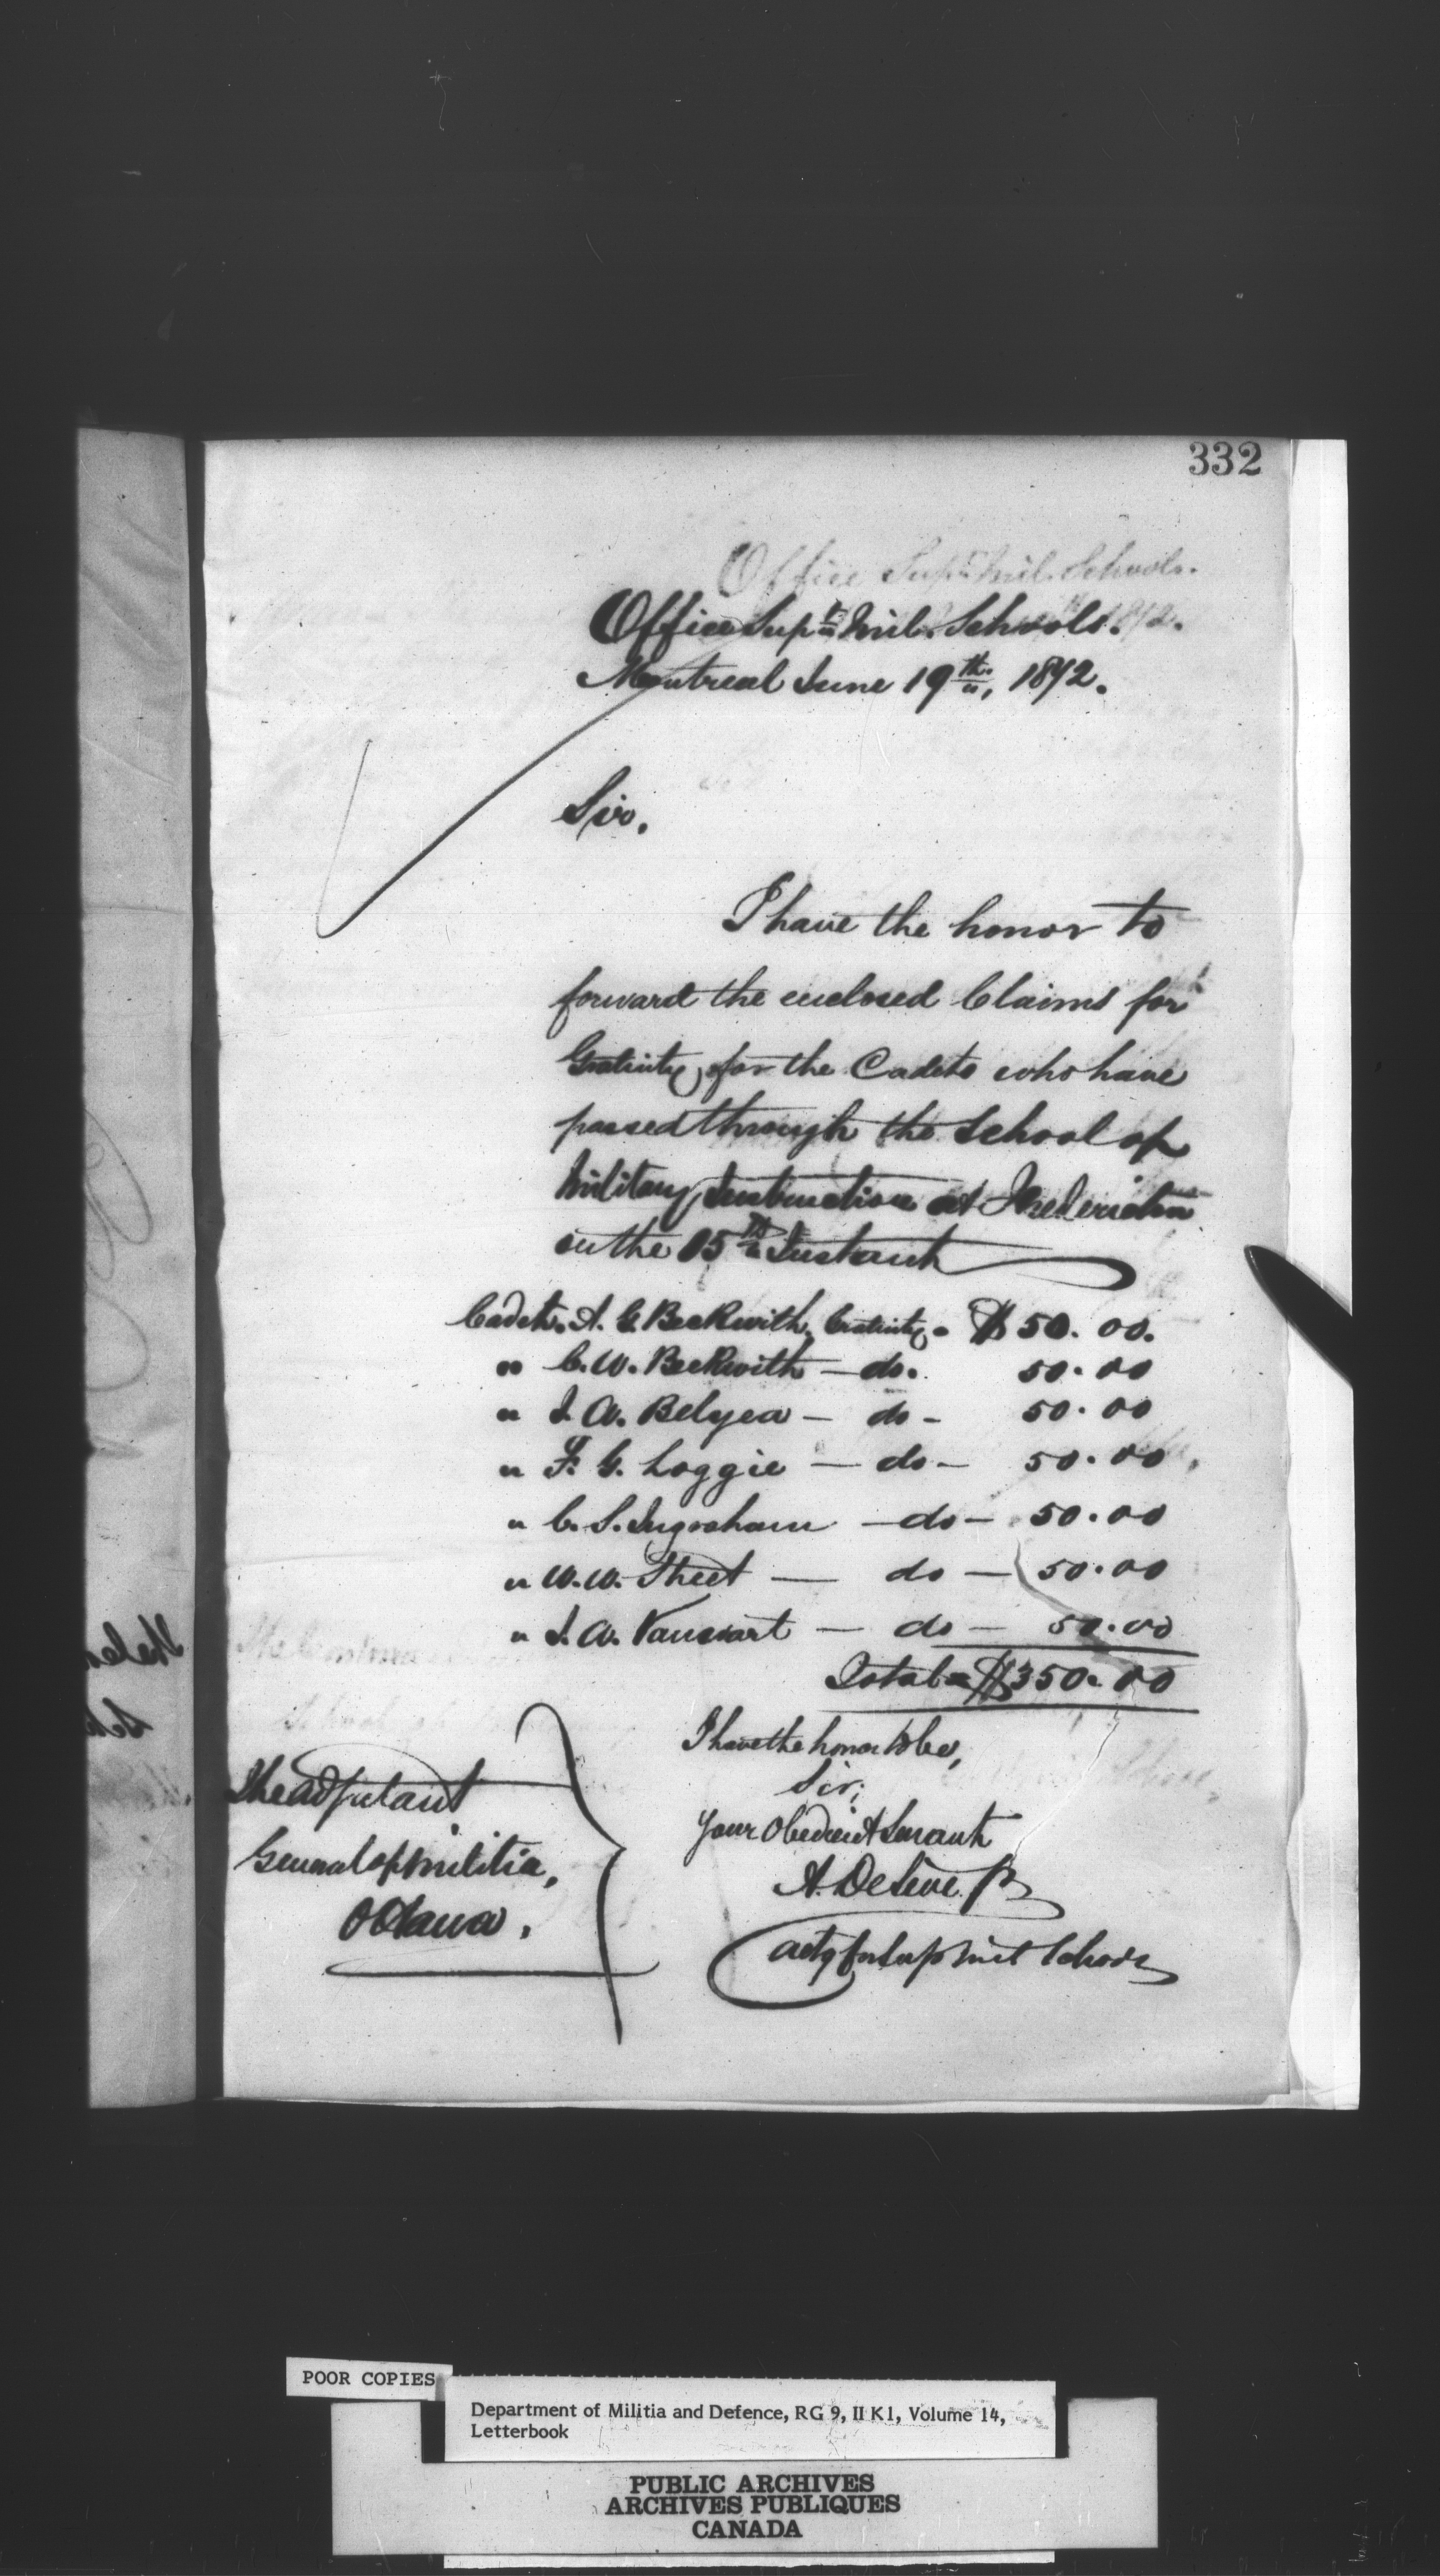 332
Office Supt. Mil. Schools.
Office Supt. Mil. Schools.
Montreal June 19th, 1872.
Sir,
I have the honor to
forward the enclosed Claims for
Gratuity, for the Cadets who have
passed through the School of
Military Instruction at Fredericton
on the 15th Instant
Cadet. A. G. Beckwith. Gratuity - $50.00.
" C. W. Beckwith - do. 50.00
" J. A. Belyea - do - 50.00
" F. G. Loggie - do - 50.00
" C. S. Ingraham - do - 50.00
" W. W. Street - do - 50.00
" J. A. Vanwart - do - 50.00
Total = $350.00
I have the honor to be,
Sir,
Your Obedient Servant
A. DeLeve
actg for Sup Mil Schools
The Adjutant
General of Militia,
Ottawa.
POOR COPIES
Department of Militia and Defence, RG 9, II K1, Volume 14,
Letterbook
PUBLIC ARCHIVES
ARCHIVES PUBLIQUES
CANADA